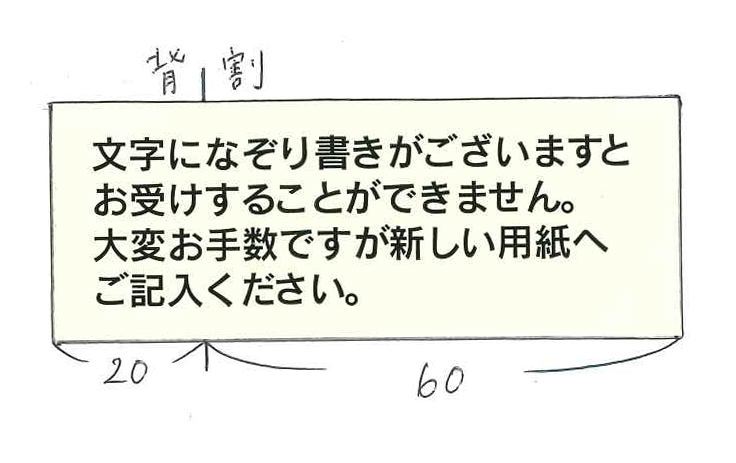 背割
文字になぞり書きがございますと
お受けすることができません。
大変お手数ですが新しい用紙へ
ご記入ください。
20 60